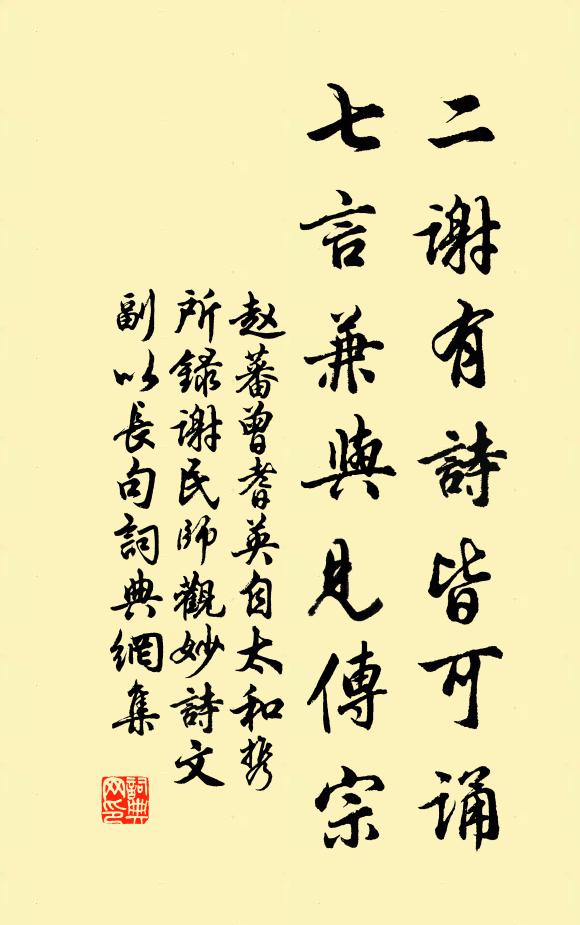 二謝有詩皆可诵
七言兼與見傳宗
赵蕃曾耆英自太和携
所録謝民師觀妙詩文
副以長句詞典網集
詞典网印